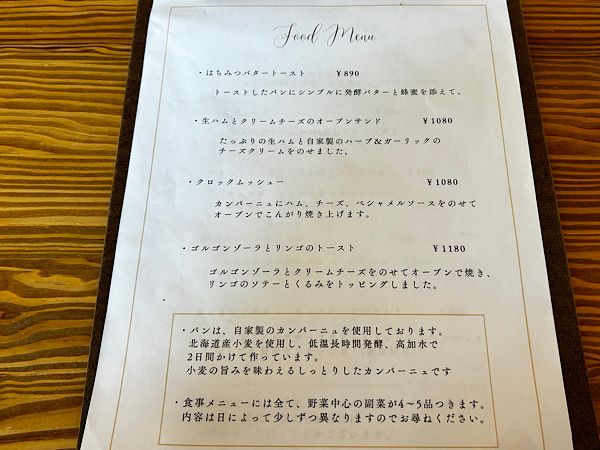 Food Menu
・はちみつバタートースト ¥890
トーストしたパンにシンプルに発酵バターと蜂蜜を添えて。
・生ハムとクリームチーズのオーブンサンド ¥1080
たっぷりの生ハムと自家製のハーブ&ガーリックの
チーズクリームをのせました。
・クロックムッシュー ¥1080
カンパーニュにハム、チーズ、ベシャメルソースをのせて
オーブンでこんがり焼き上げます。
・ゴルゴンゾーラとリンゴのトースト ¥1180
ゴルゴンゾーラとクリームチーズをのせてオーブンで焼き、
リンゴのソテーとくるみをトッピングしました。
・パンは、自家製のカンパーニュを使用しております。
北海道産小麦を使用し、低温長時間発酵、高加水で
2日間かけて作っています。
小麦の旨みを味わえるしっとりしたカンパーニュです
・食事メニューには全て、野菜中心の副菜が4〜5品つきます。
内容は日によって少しずつ異なりますのでお尋ねください。